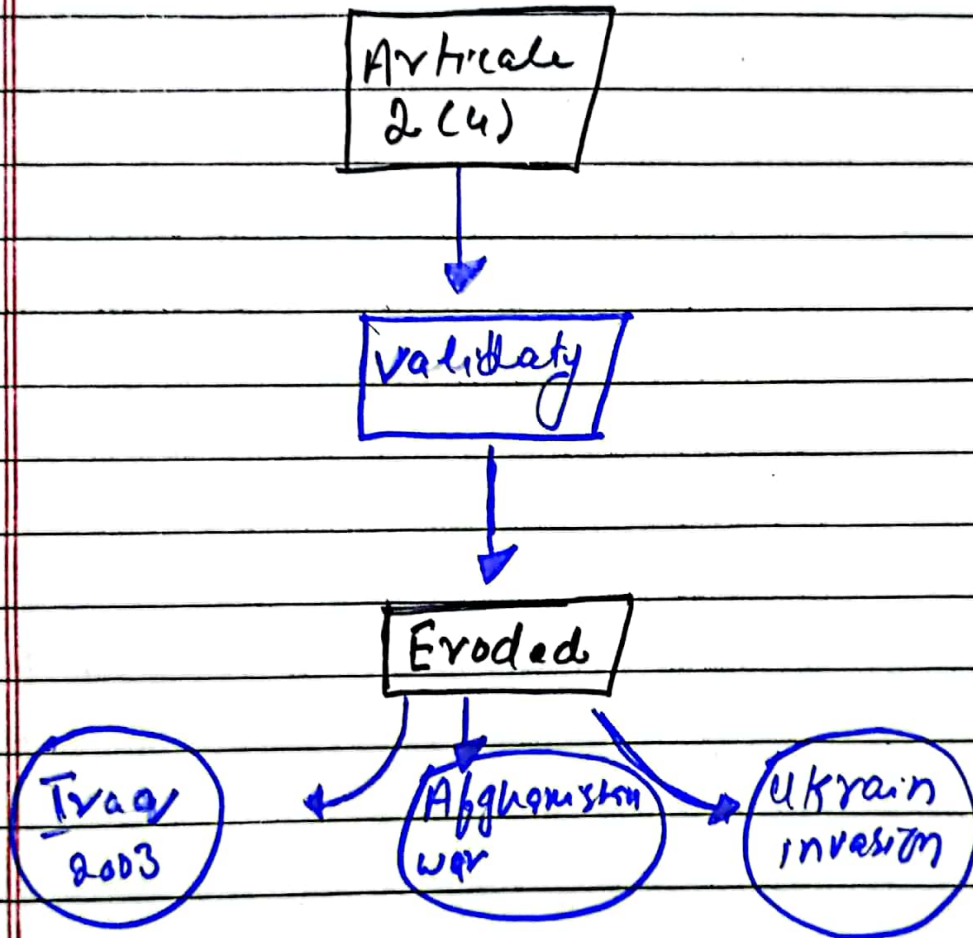 Articale
2 (4)
Validaty
Eroded
Iraq
2003
Afghanistan
war
Ukrain
invasion